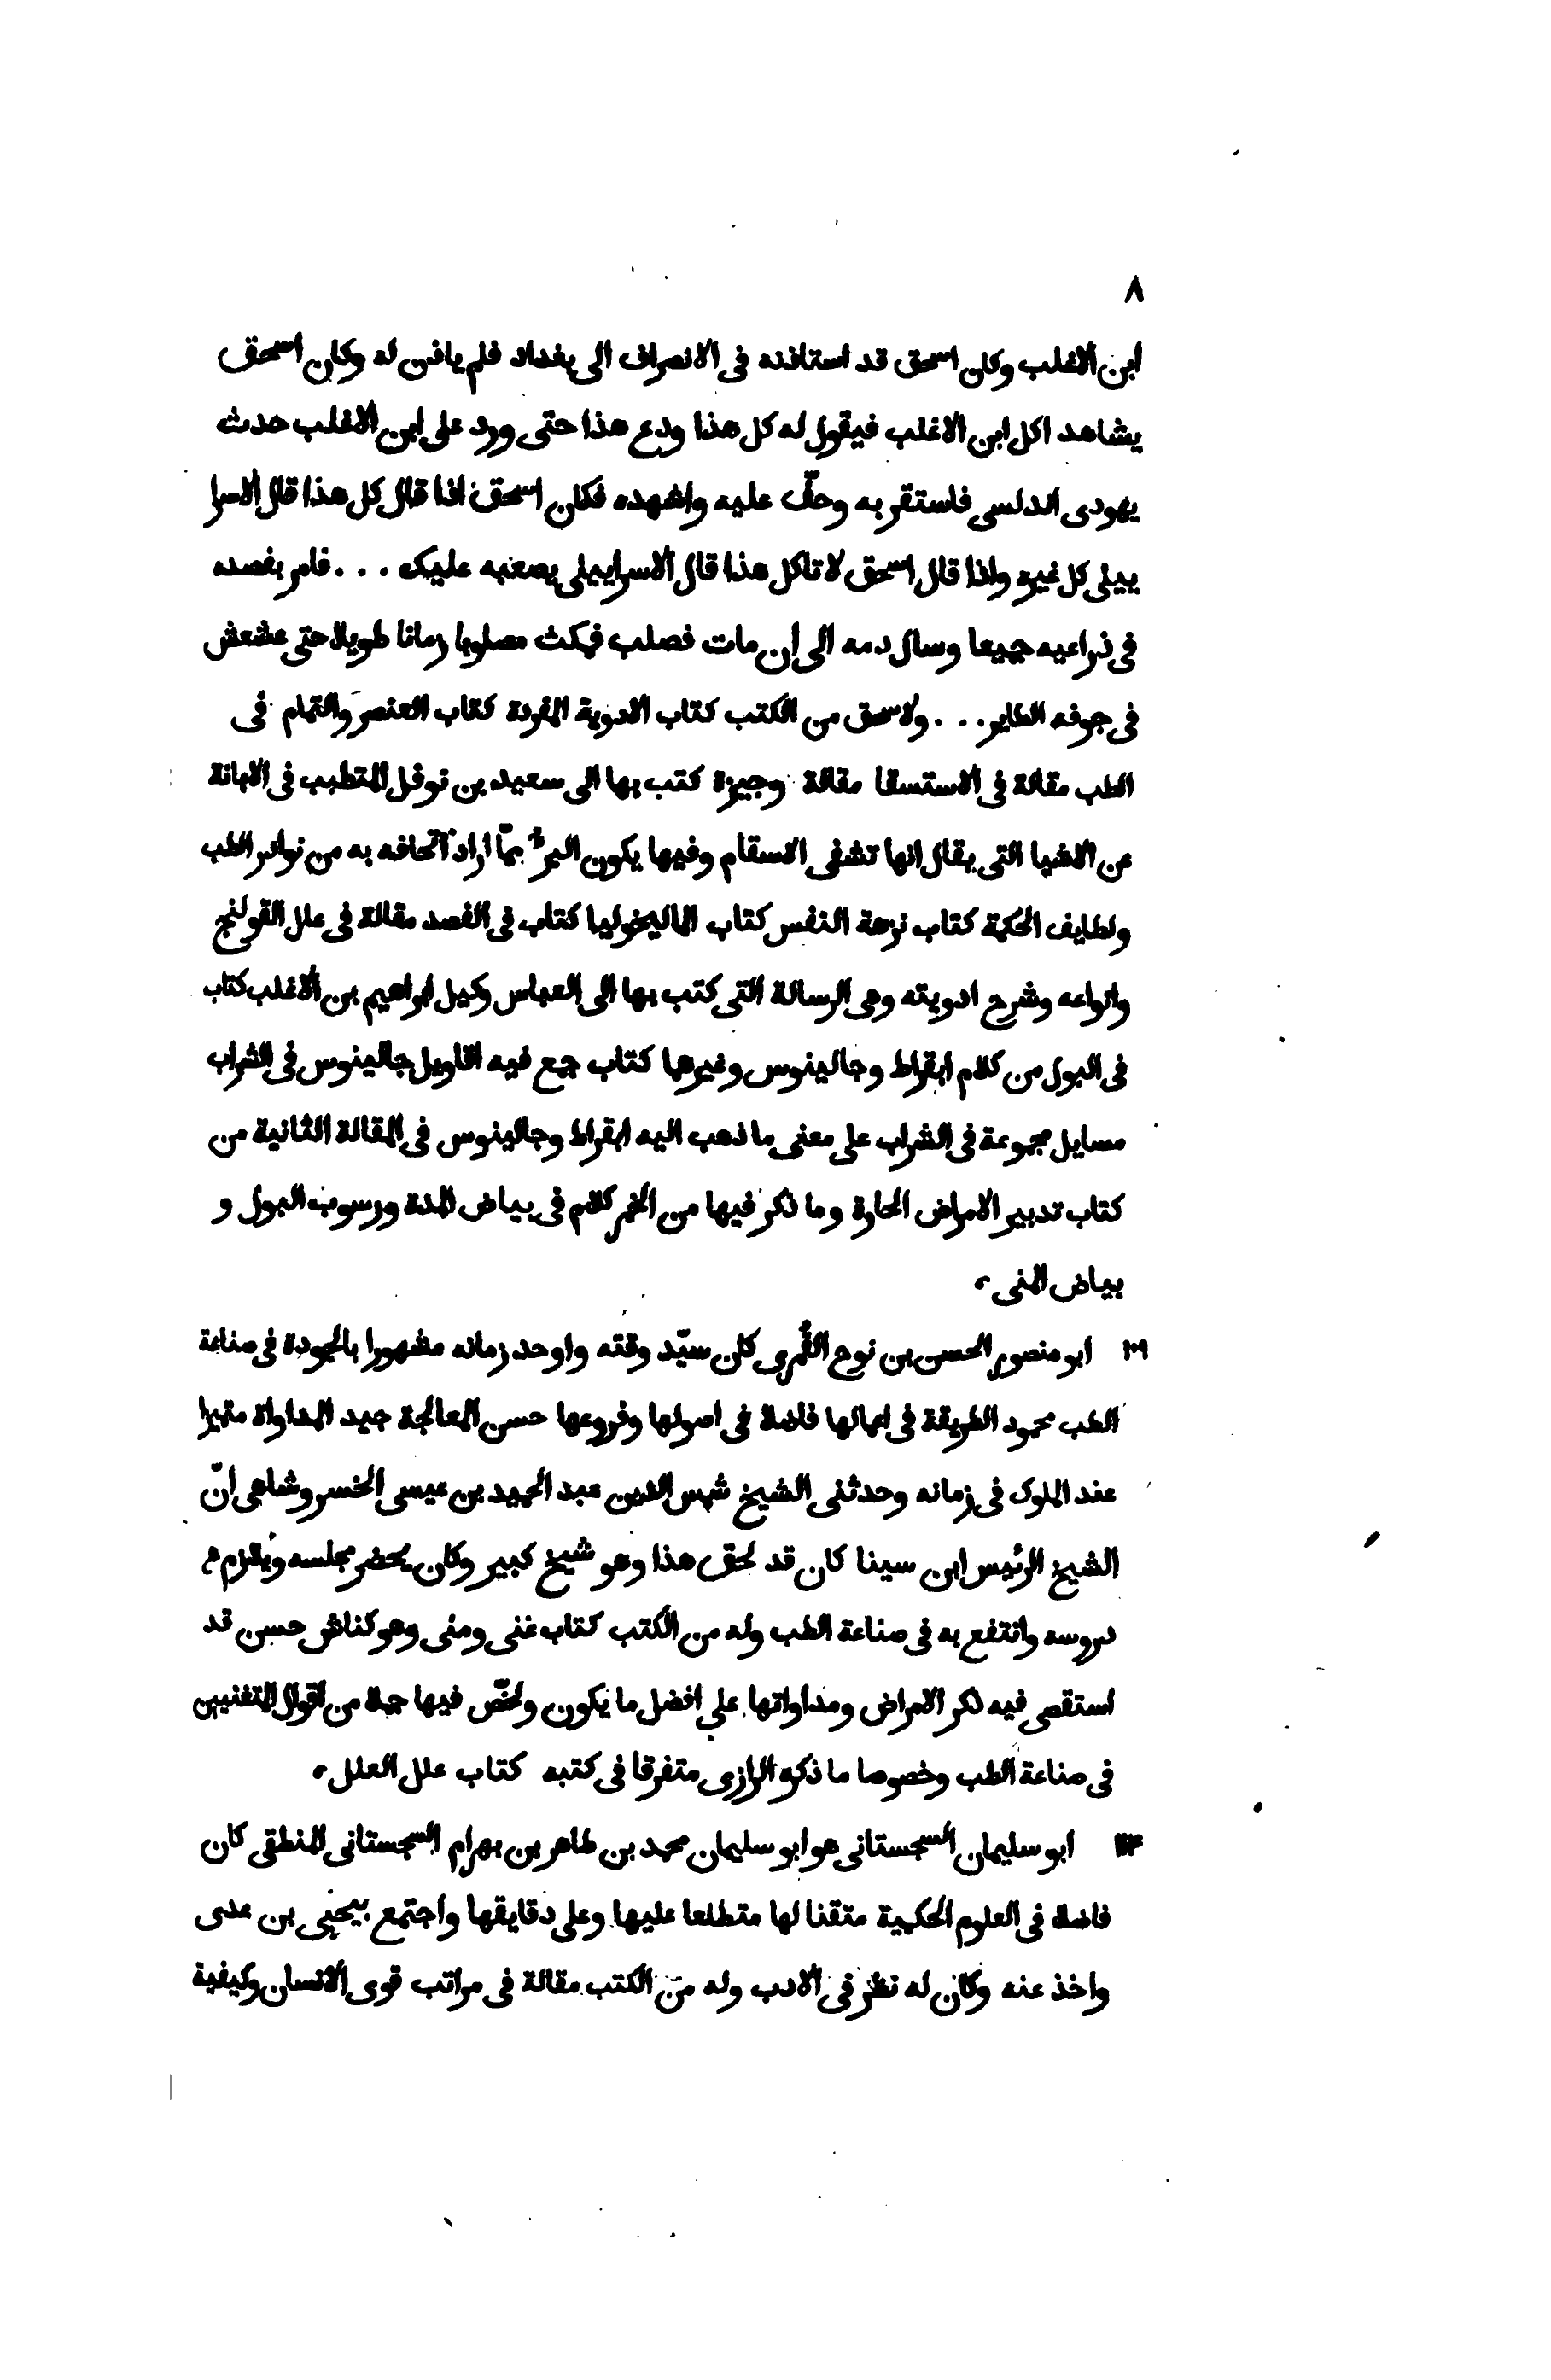 ٨
ابن الاغلب وكان اسحق قد استاذنه فى الانصراف الى بغداد فلم ياذن له وكان اسحق
يشاهد اكل ابن الاغلب فيقول له كل هذا ودع هذا حتى ورد على ابن الاغلب حدث
يهودى اندلسى فاستقر به وخفّ عليه واشهده فكان اسحق اذا قال كل هذا قال الاسرا
ييلى كل غيره واذا قال اسحق لا تاكل هذا قال الاسراييلى يصعبه عليك . . . فامر بفصده
فى ذراعيه جميعا وسال دمه الى ان مات فصلب فمكث مصلوبا زمانا طويلا حتى عشعش
فى جوفه الطاير . . . ولاسحق من الكتب كتاب الادوية المفردة كتاب العنصر والتمام فى
الطب مقالة فى الاستسقا مقالة وجيزة كتب بها الى سعيد بن نوفل المتطبب فى الابانة
عن الاشيا التى يقال انها تشفى الاسقام وفيها يكون البرء ممّا اراد اتحافه به من نوادر الطب
ولطايف الحكمة كتاب نزهة النفس كتاب الماليخوليا كتاب فى الفصد مقالة فى علل القولنج
وانواعه وشرح ادويته وهى الرسالة التى كتب بها الى العباس وكيل ابراهيم بن الاغلب كتاب
فى البول من كلام ابقراط وجالينوس وغيرهما كتاب جمع فيه اقاويل جالينوس فى الشراب
مسايل مجموعة فى الشراب على معنى ما ذهب اليه ابقراط وجالينوس فى المقالة الثانية من
كتاب تدبير الامراض الحارة وما ذكر فيها من الخمر كلام فى بياض المدة ورسوب البول و
بياض المنى ،
١٠٩ ابو منصور الحسن بن نوح القُمرى كان سيّد وقته واوحد زمانه مشهورا بالجودة فى صناعة
الطب محمود الطريقة فى اعمالها فاضلا فى اصولها وفروعها حسن المعالجة جيد المداواة متميزا
عند الملوك فى زمانه وحدثنى الشيخ شمس الدين عبد الحميد بن عيسى الخسروشاهى انّ
الشيخ الرئيس ابن سينا كان قد لحق هذا وهو شيخ كبير وكان يحضر مجلسه ويلازم
دروسه وانتفع به فى صناعة الطب وله من الكتب كتاب غنى ومنى وهو كناش حسن قد
استقصى فيه ذكر الامراض ومداواتها على افضل ما يكون ولخّص فيها جملا من اقوال المتفنيين
فى صناعة الطب وخصوصا ما ذكره الرازى متفرقا فى كتبه كتاب علل العلل ،
ابو سليمان السجستانى هو ابو سليمان محمد بن طاهر بن بهرام السجستانى المنطقى كان
فاضلا فى العلوم الحكمية متقنا لها متطلعا عليها وعلى دقايقها واجتمع بيحيى بن عدى
واخذ عنه وكان له نظر فى الادب وله من الكتب مقالة فى مراتب قوى الانسان وكيفية